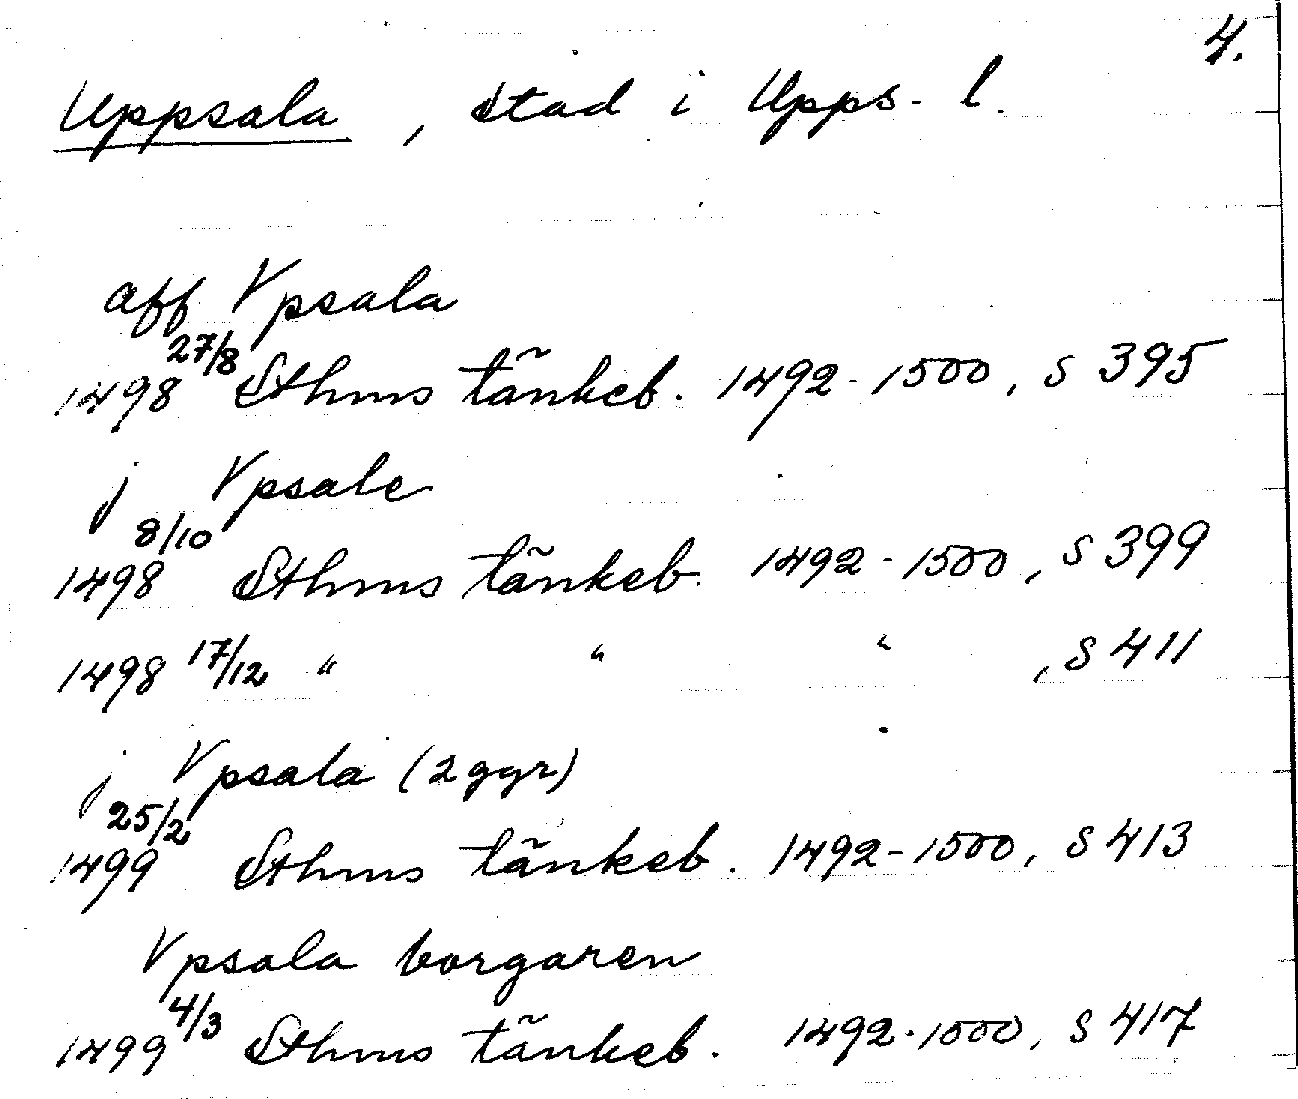 4.
Uppsala, stad i Upps. l.
aff Vpsala
1498 27/8 Sthms tänkeb. 1492-1500, s 395
j Vpsale
1498 8/10 Sthms tänkeb. 1492-1500, s 399
1498 17/12 " " " , s 411
j Vpsala (2 ggr)
1499 25/2 Sthms tänkeb. 1492-1500, s 413
Vpsala borgaren
1499 4/3 Sthms tänkeb. 1492-1500, s 417